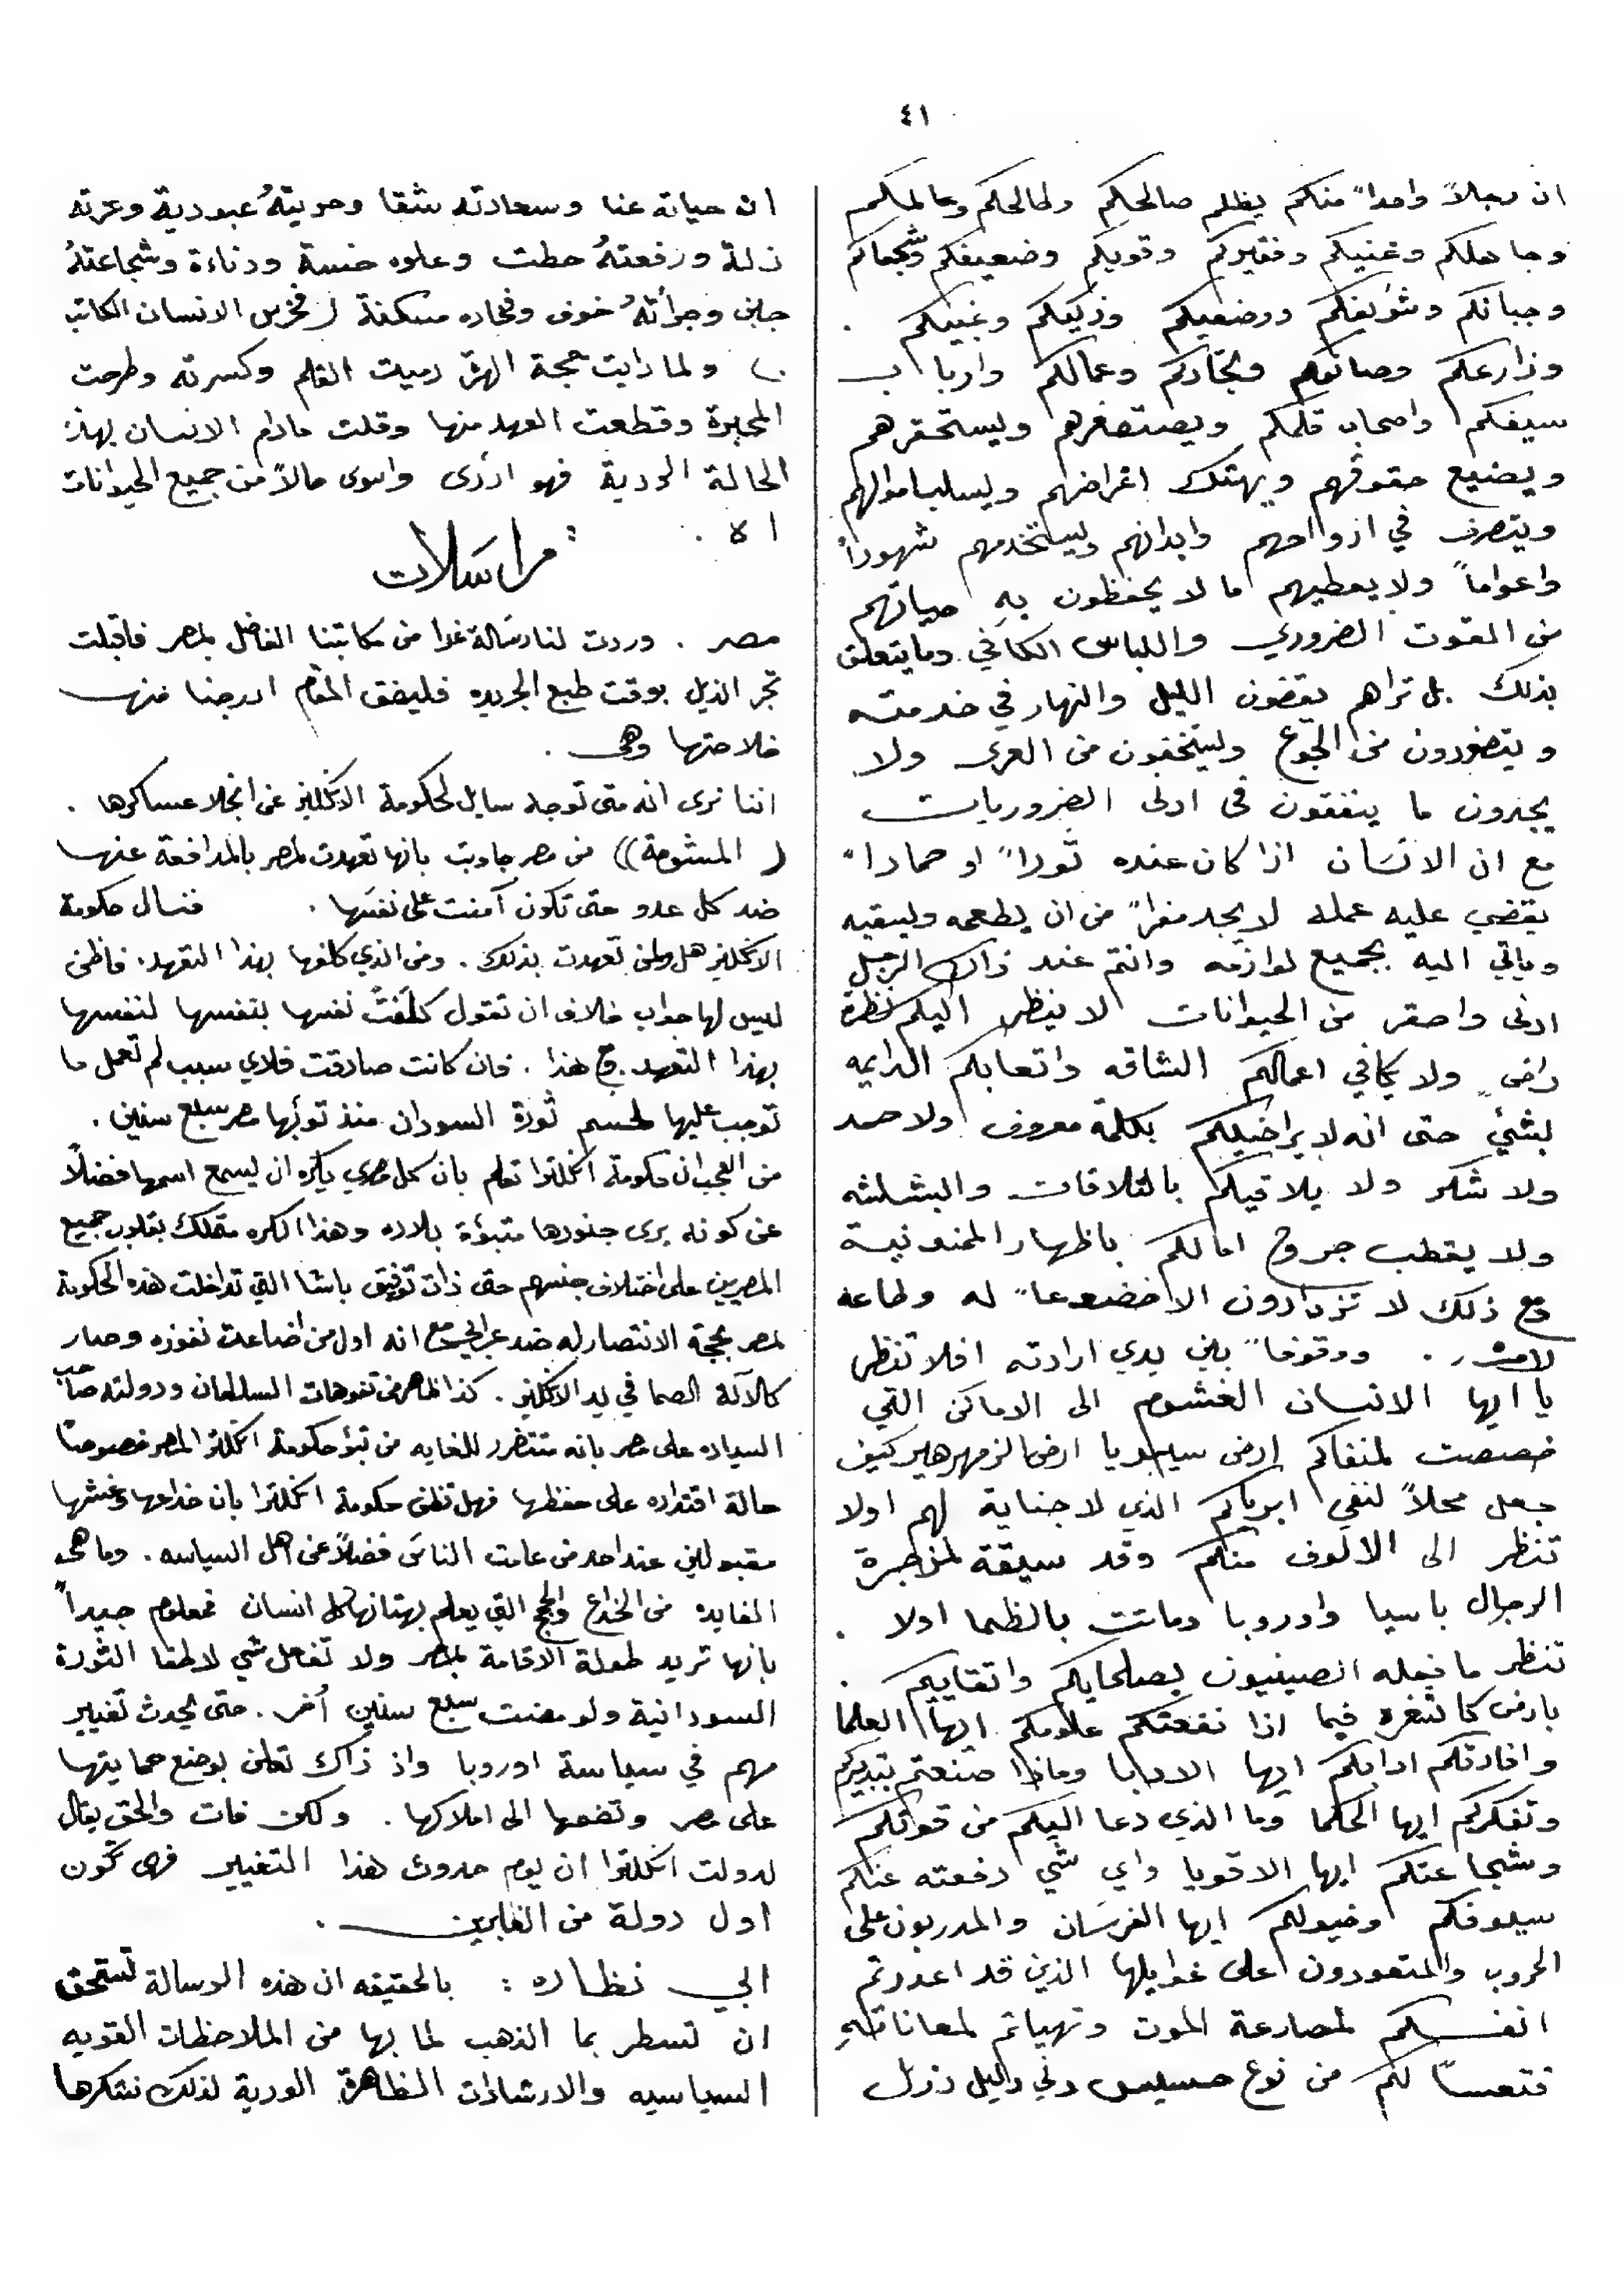 ٤١
ان رجلاً واحداً منكم يظلم صالحكم وطالحكم وعالمكم
وجاهلكم وغنيكم وفقيركم وقويكم وضعيفكم وشجعاكم
وجبانكم وشريفكم ورضعيكم وزكيكم وغبيكم .
وزارعكم وصانعكم وتجّاركم وعمالكم وارباب
سيفكم واصحاب قلمكم ويصتصغرهم ويستحقرهم
ويضيع حقوقهم ويهتك اغراضهم ويسلب اموالهم
ويتصرف في ازواحهم وابدانهم ويستخدمهم شهوراً
واعواماً ولا يعطيهم ما لا يحفظون بهِ حياتهم
من القوت الضروري واللباس الكافي وما يتعلق
بذلك بل تراهم يقضون الليل والنهار في خدمته
و يتضوردون من الجوع وليتخفون من العرى ولا
يجدون ما ينفقون فى ادنى الضروريات
مع ان الانسَان اذا كان عنده ثوراً او حماراً
يقضي عليه عمله لا يجد مفراً من ان يطعمه وليبقيه
وياتي اليه بجميع لوازمه وانتم عند ذاك الرجل
ادنى واحقر من الحيوانات لا ينظر اليكم نظرة
راضى ولا يكافي اعمالكم الشاقه واتعابكم الدايمه
بشئي حتى انه لا يراضيكم بكلمة معروف ولا حمد
ولا شكر ولا يلاقيكم بالقلاقات والبشاشه
ولا يقطب جروح امالكم باظهار الممنونية
ومع ذلك لا تزدادون الا خضوعاً له وطاعة
لامره . ووقوفاً بين يدي ارادته افلا تنظر
يا ايها الانسان الغشوم الى الاماكن التي
خصصت لمنفاكم ارض سيبريا ارض الزمهرهير كيف
جعل محلاً لنفي ابرياكم الذي لا جناية لهم اولا
تنظر الى الالوف منكم وقد سيقة لمزجرة
الرجال باسيا واوروبا وماتت بالظما اولا .
تنظر ما فعله الصينيون بصلحايكم واتقاييكم .
بارض كاشغره فيما اذا نفعتكم علومكم ايها العلما
وافادتكم ادابكم ايها الادبا وماذا صنعتم بتدبيركم
وتفكركم ايها الحكما وما الذي دعا اليكم من قوتكم
وشجاعتكم ايها الاقويا واي شي دفعته عنكم
سيوفكم وخيولكم ايها الفرسَان والمدربون على
الحروب والمتعودون على غوايلها الذين قد اعددتم
انفسكم لمصارعة الموت وتهياتم لمعاناتهِ
فتعساً لكم من نوع خسيس دني ذليل رذل
ان حياته عنا وسعادته شقا وحريتهُ عبودية وعزته
ذلة ورفعتهُ حطت وعلوه خسة ودناءة وشجاعتهُ
جبن وجرأتهُ خوف وفخاره مسكنة ( فخرس الانسان الكاتب
) ولما رايت حجة الهرّ رميت القلم وكسرته وطرحت
المحبرة وقطعت العهد منها وقلت مادام الانسان بهذه
الحالة الردية فهو ارزى واسوى حالاً من جميع الحيوانات
اه .
مراسَلات
مصر . وردت لنا رسَالة غرا من مكاتبنا الفاضل بمصر فاقبلت
تجر الذيل بوقت طبع الجريده فليضق المقام ادرجنا منها
خلاصتها وهى .
اننا نرى انه متى توجه سايل لحكومة الانكليز عن انجلا عساكرها .
( المشومة )) من مصر جاوبت بانها تعهدت لمصر بالمدافعة عنها
ضد كل عدو حتى تكون آمنت على نفسَها . فنسال حكومة
الانكليز هل وطنى تعهدت بذلك . ومن الذي كلفها بهذا التعهد . فاظن
ليس لها جواب خلاف ان تقول كلّفت نفسها بنفسها لنفسها
بهذا التعهد . مع هذا . فان كانت صادقت فلاي سبب لم تعمل ما
توجب عليها لحسم ثورة السودان منذ توبها مصر سبع سنين .
من العجب ان حكومة انكلترا تعلم بان كل مصري يكره ان يسمع اسمها فضلاً
عن كونه يرى جنودها متبوّة بلاده وهذا الكره متملك بقلوب جميع
المصريين على اختلاف جنسهم حتى ذات توفيق باشا التي تداخلت هذه الحكومة
بمصر بحجة الانتصار له ضد عرابي مع انه اول من اضاعت نفوزه وصار
كالآلة الصما في يد الانكليز . كذا ظاهر من تفوهات السلطان ودولته صاحب
السياده على مصر بانه متضرر للغايه من تبوّ حكومة انكلترا لمصر خصوصاً
حالة اقتداره على حفظها فهل تظن حكومة انكلترا بان خداعها وغشها
مقبولين عند احد من عامت الناسَ فضلاً عن اهل السياسه . وما هى
الفايده من الخداع والحج التي يعلم بهتانها كل انسان فمعلوم جيداً
بانها تريد طولة الاقامة بمصر ولا تفعل شي لاطفا الثورة
السودانية ولو مضت سبع سنين اُخر . حتى يحدث تغيير
مهم في سياسة اوروبا واذ ذّاك تعلن بوضع حمايتها
على مصر وتضمها الى املاكها . ولكن فات والحق يقال
لدولت انكلترا ان يوم حدوث هذا التغيير فهى تكون
اول دولة من الغابرين .
ابي نظاره : بالحقيقه ان هذه الرسالة تستحق
ان تسطر بما الذهب لما بها من الملاحظات القويه
السياسيه والارشادات الظاهرة الورية لذلك نشكرها